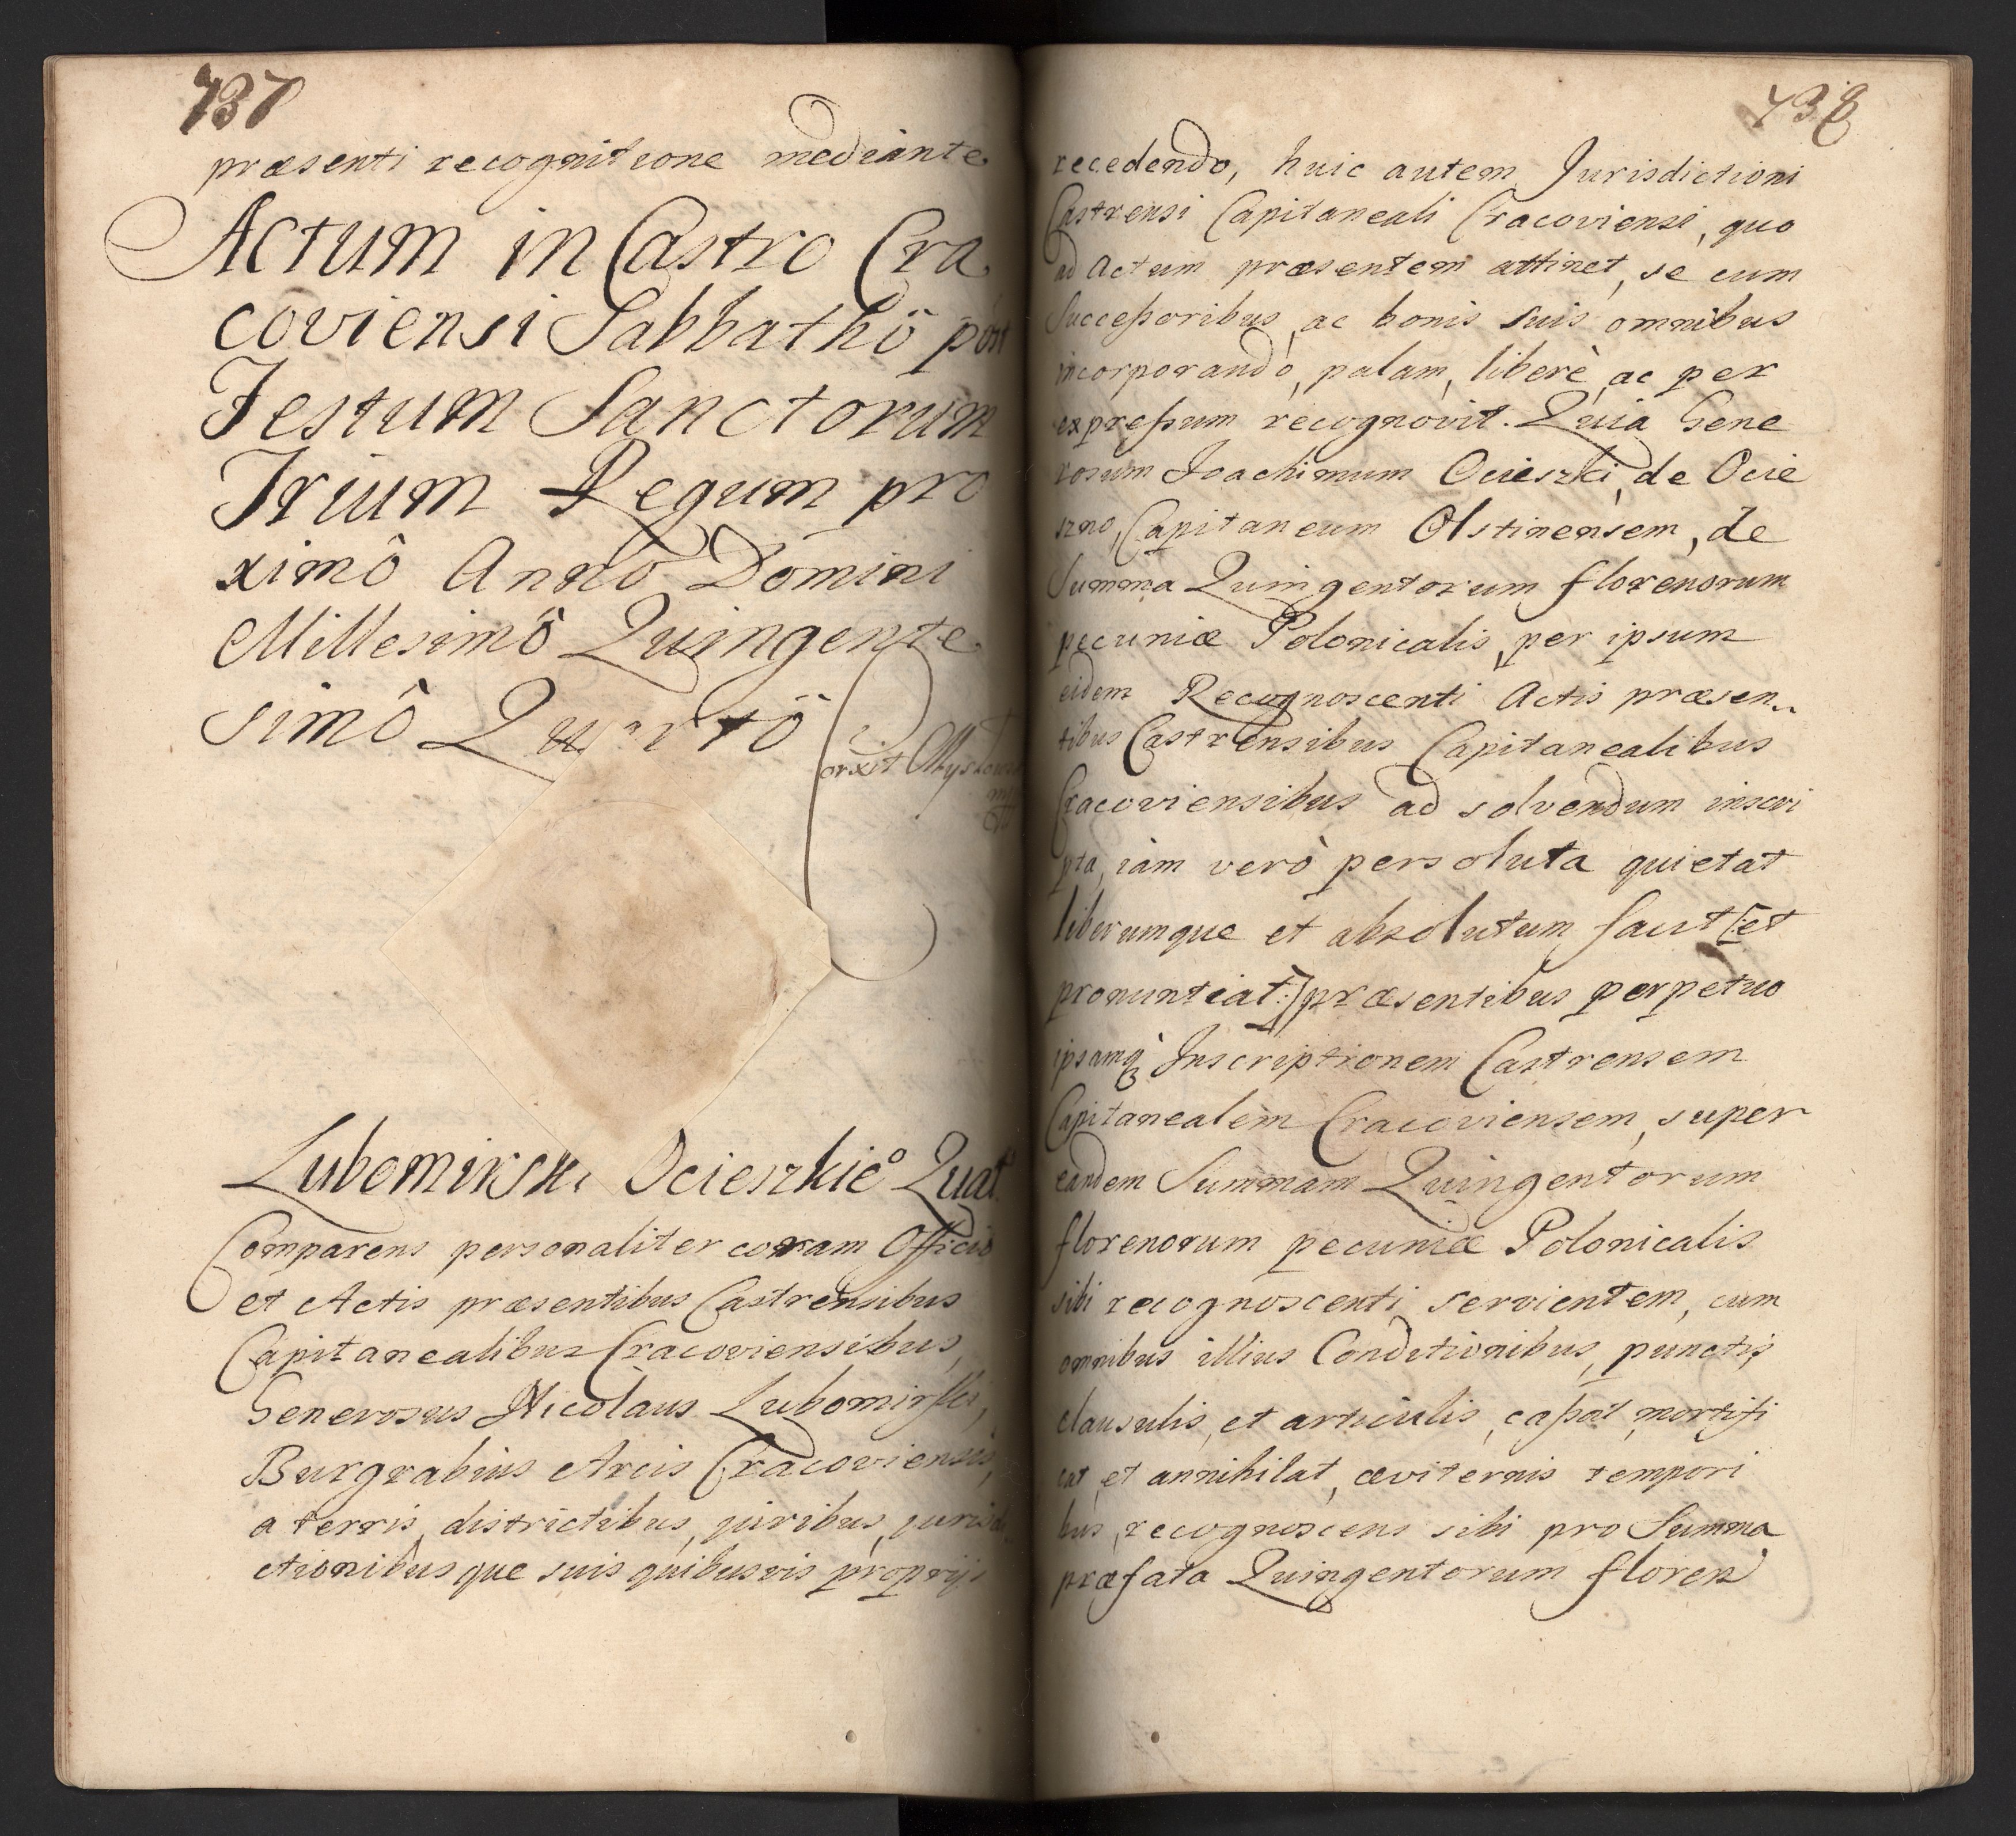 737
præsenti recognitione mediante
Actum in Castro Cra
coviensi Sabbathô post
Festum Sanctorum
Trium Regum pro
ximô Annô Domini
Millesimô Quingente
simô Quartô
Lubomirski Ocieszkiº Quat
Comparens personaliter coram Officio
et Actis præsentibus Castrensibus
Capitanealibus Cracoviensibus,
Generosus Nicolaus Lubomirski,
Burgrabius Arcis Cracoviensis,
a terris, districtibus, juribus, jurisdi
ctionibusque suis quibusvis proprijs
738
recedendo, huic autem Jurisdictioni
Castrensi Capitaneali Cracoviensi, quo
ad Actum præsentem attinet, se cum
Successoribus, ac bonis suis omnibus
incorporandô, palam, liberè ac per
expressum recognovit. Quia Gene
rosum Joachimum Ocieszki, de Ocie
szno, Capitaneum Olstinensem, de
Summa Quingentorum florenorum
pecuniæ Polonicalis, per ipsum
eidem Recognoscenti Actis præsen„
tibus Castrensibus Capitanealibus
Cracoviensibus ad solvendum inscri
pta, iàm verò persoluta quietat
liberumque et absolutum facit [:et
pronuntiat:] præsentibus perpetuo
ipsamq; Inscriptionem Castrensem
Capitanealem Cracoviensem, super
eandem Summam Quingentorum
florenorum pecuniæ Polonicalis
sibi recognoscenti servientem, cum
omnibus illius Conditionibus, punctis,
clausulis, et articulis, cassat, mortifi
cat, et annihilat, æviternis tempori
bus, recognoscens sibi pro Summa
præfata Quingentorum floren